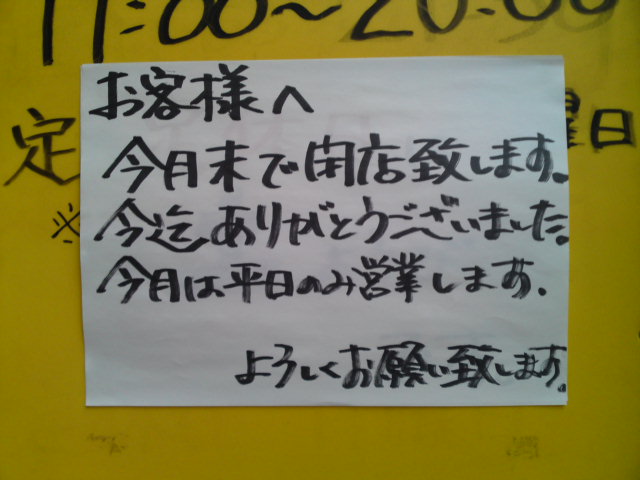 11:00〜20:00
お客様へ
定
曜日
今月末で閉店致します。
※
今迄ありがとうございました。
今月は平日のみ営業します.
よろしくお願い致します。